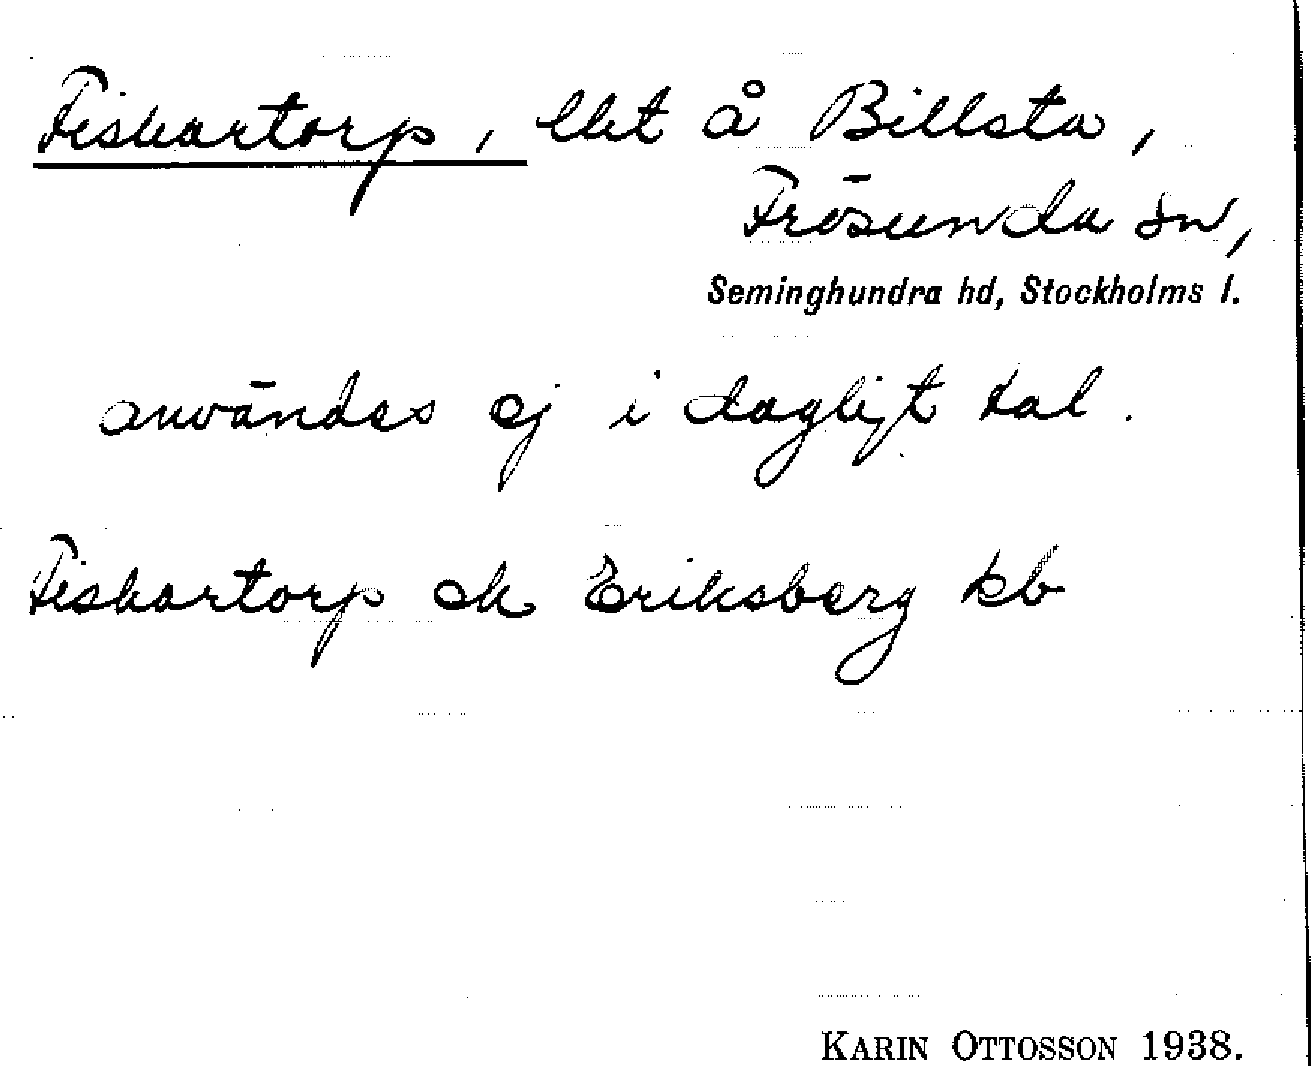 Fiskartorp, lht å Billsta,
Frösunda sn,
Seminghundra hd, Stockholms l.
användes ej i dagligt tal.
Fiskartorp ek Eriksberg kb
KARIN OTTOSSON 1938.